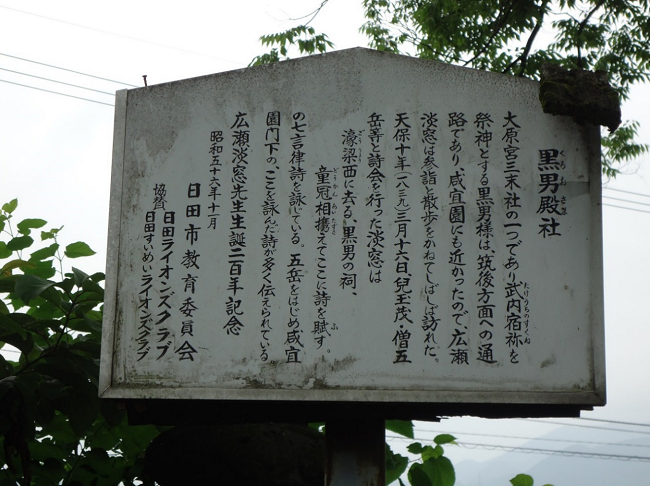 黒男殿社
くろおさま
大原宮三末社の一つであり武内宿祢を
たけうちのすくね
祭神とする黒男様は、筑後方面への通
路であり、咸宜園にも近かったので、広瀬
淡窓は参詣と散歩をかねてしばしば訪れた。
天保十年(一八三九)三月十六日、兒玉茂・僧五
岳等と詩会を行った淡窓は
濠梁西に去る、黒男の祠、
ごうりょう
童冠相攜えてここに詩を賦す。
どうかんあいたずさ
ふ
の七言律詩を詠じている。五岳をはじめ咸宜
園門下の、ここを詠んだ詩が多く伝えられている
広瀬淡窓先生生誕二百年記念
昭和五十六年十一月
日田市教育委員会
協賛
日田ライオンズクラブ
日田すいめいライオンズクラブ